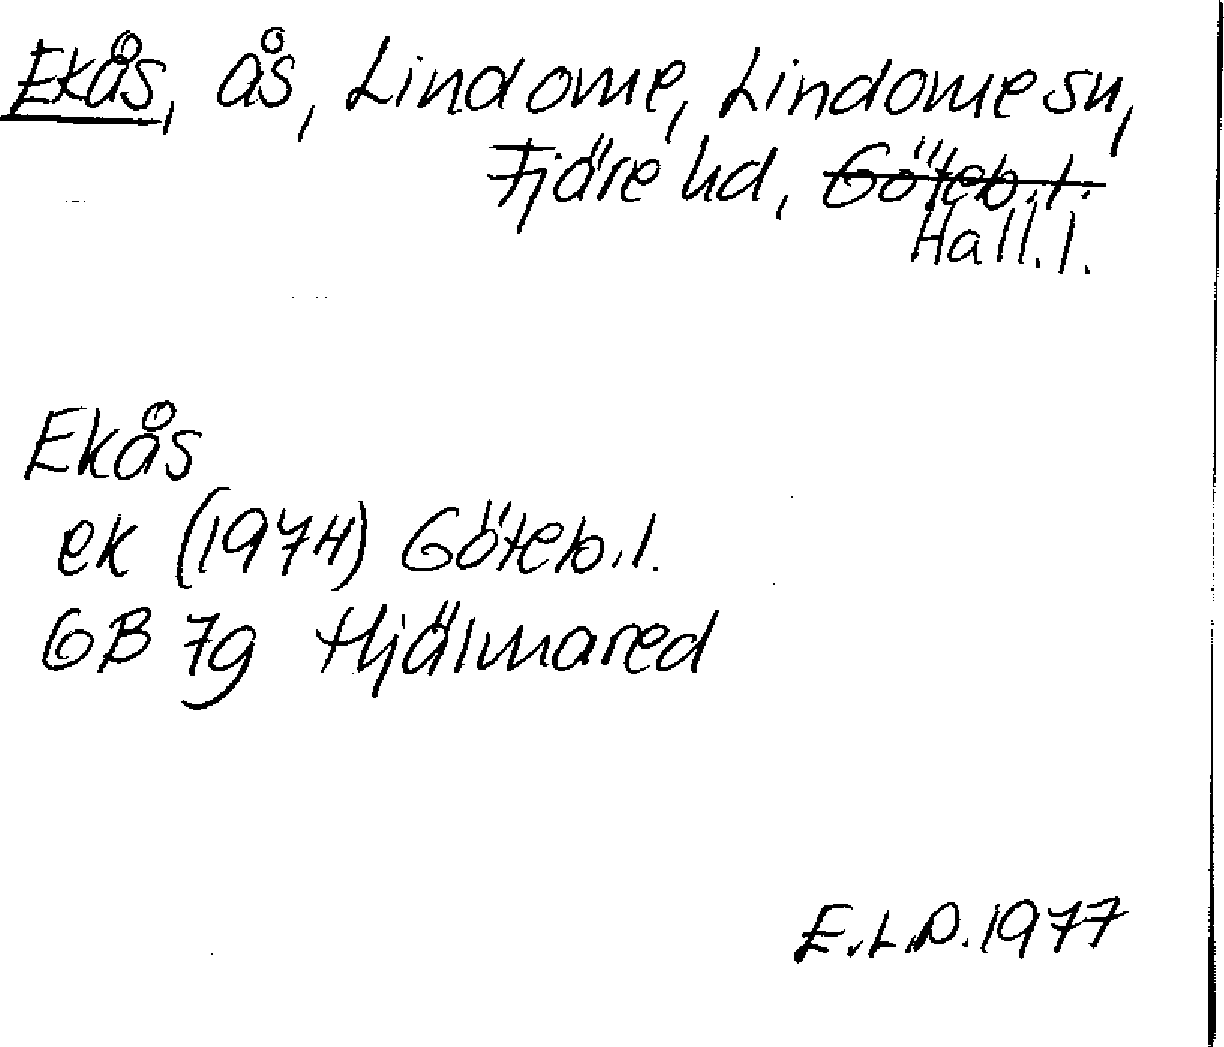 Ekås, ås, Lindome, Lindome sn,
Fjäre hd, Göteb.l.
Hall.l.
Ekås
ek (1974) Göteb.l.
GB 7g Hjälmared
E.L.D. 1977